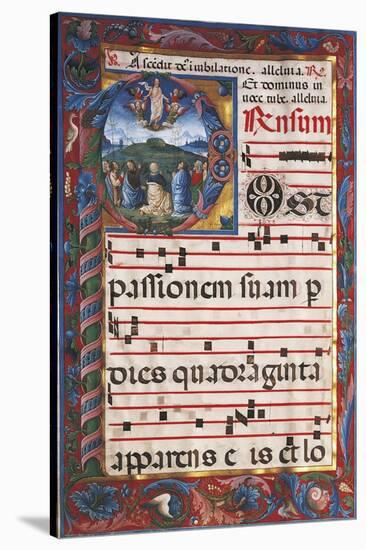 Ascēdit de' iubilatione. alleluia.
Et dominus in
uoce tube. alleluia.
Rensum
Ost
passionem suam p
dies quadraginta
apparens e is et lo